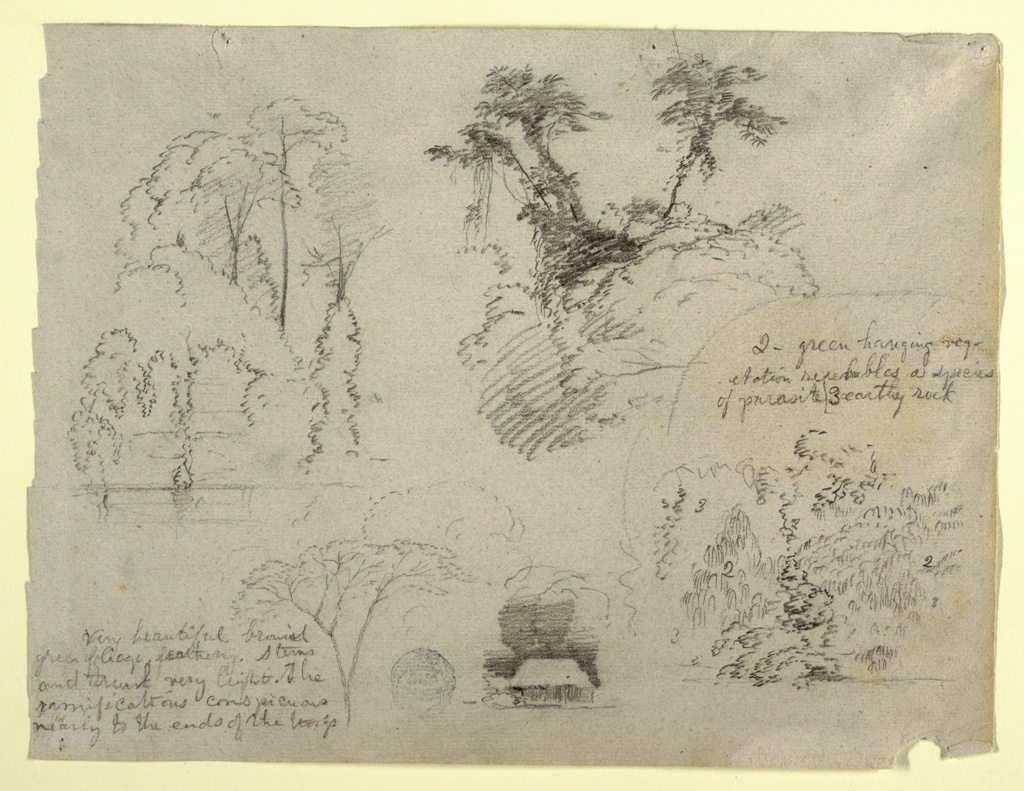 2 - green hanging veg-
etation resembles a species
of parasite 3 earthy rock
3
2
2
3
3
Very beautiful
green foliage feathery. Stems
and very light. The
ramifications conspicuous
nearly to the ends of the twigs